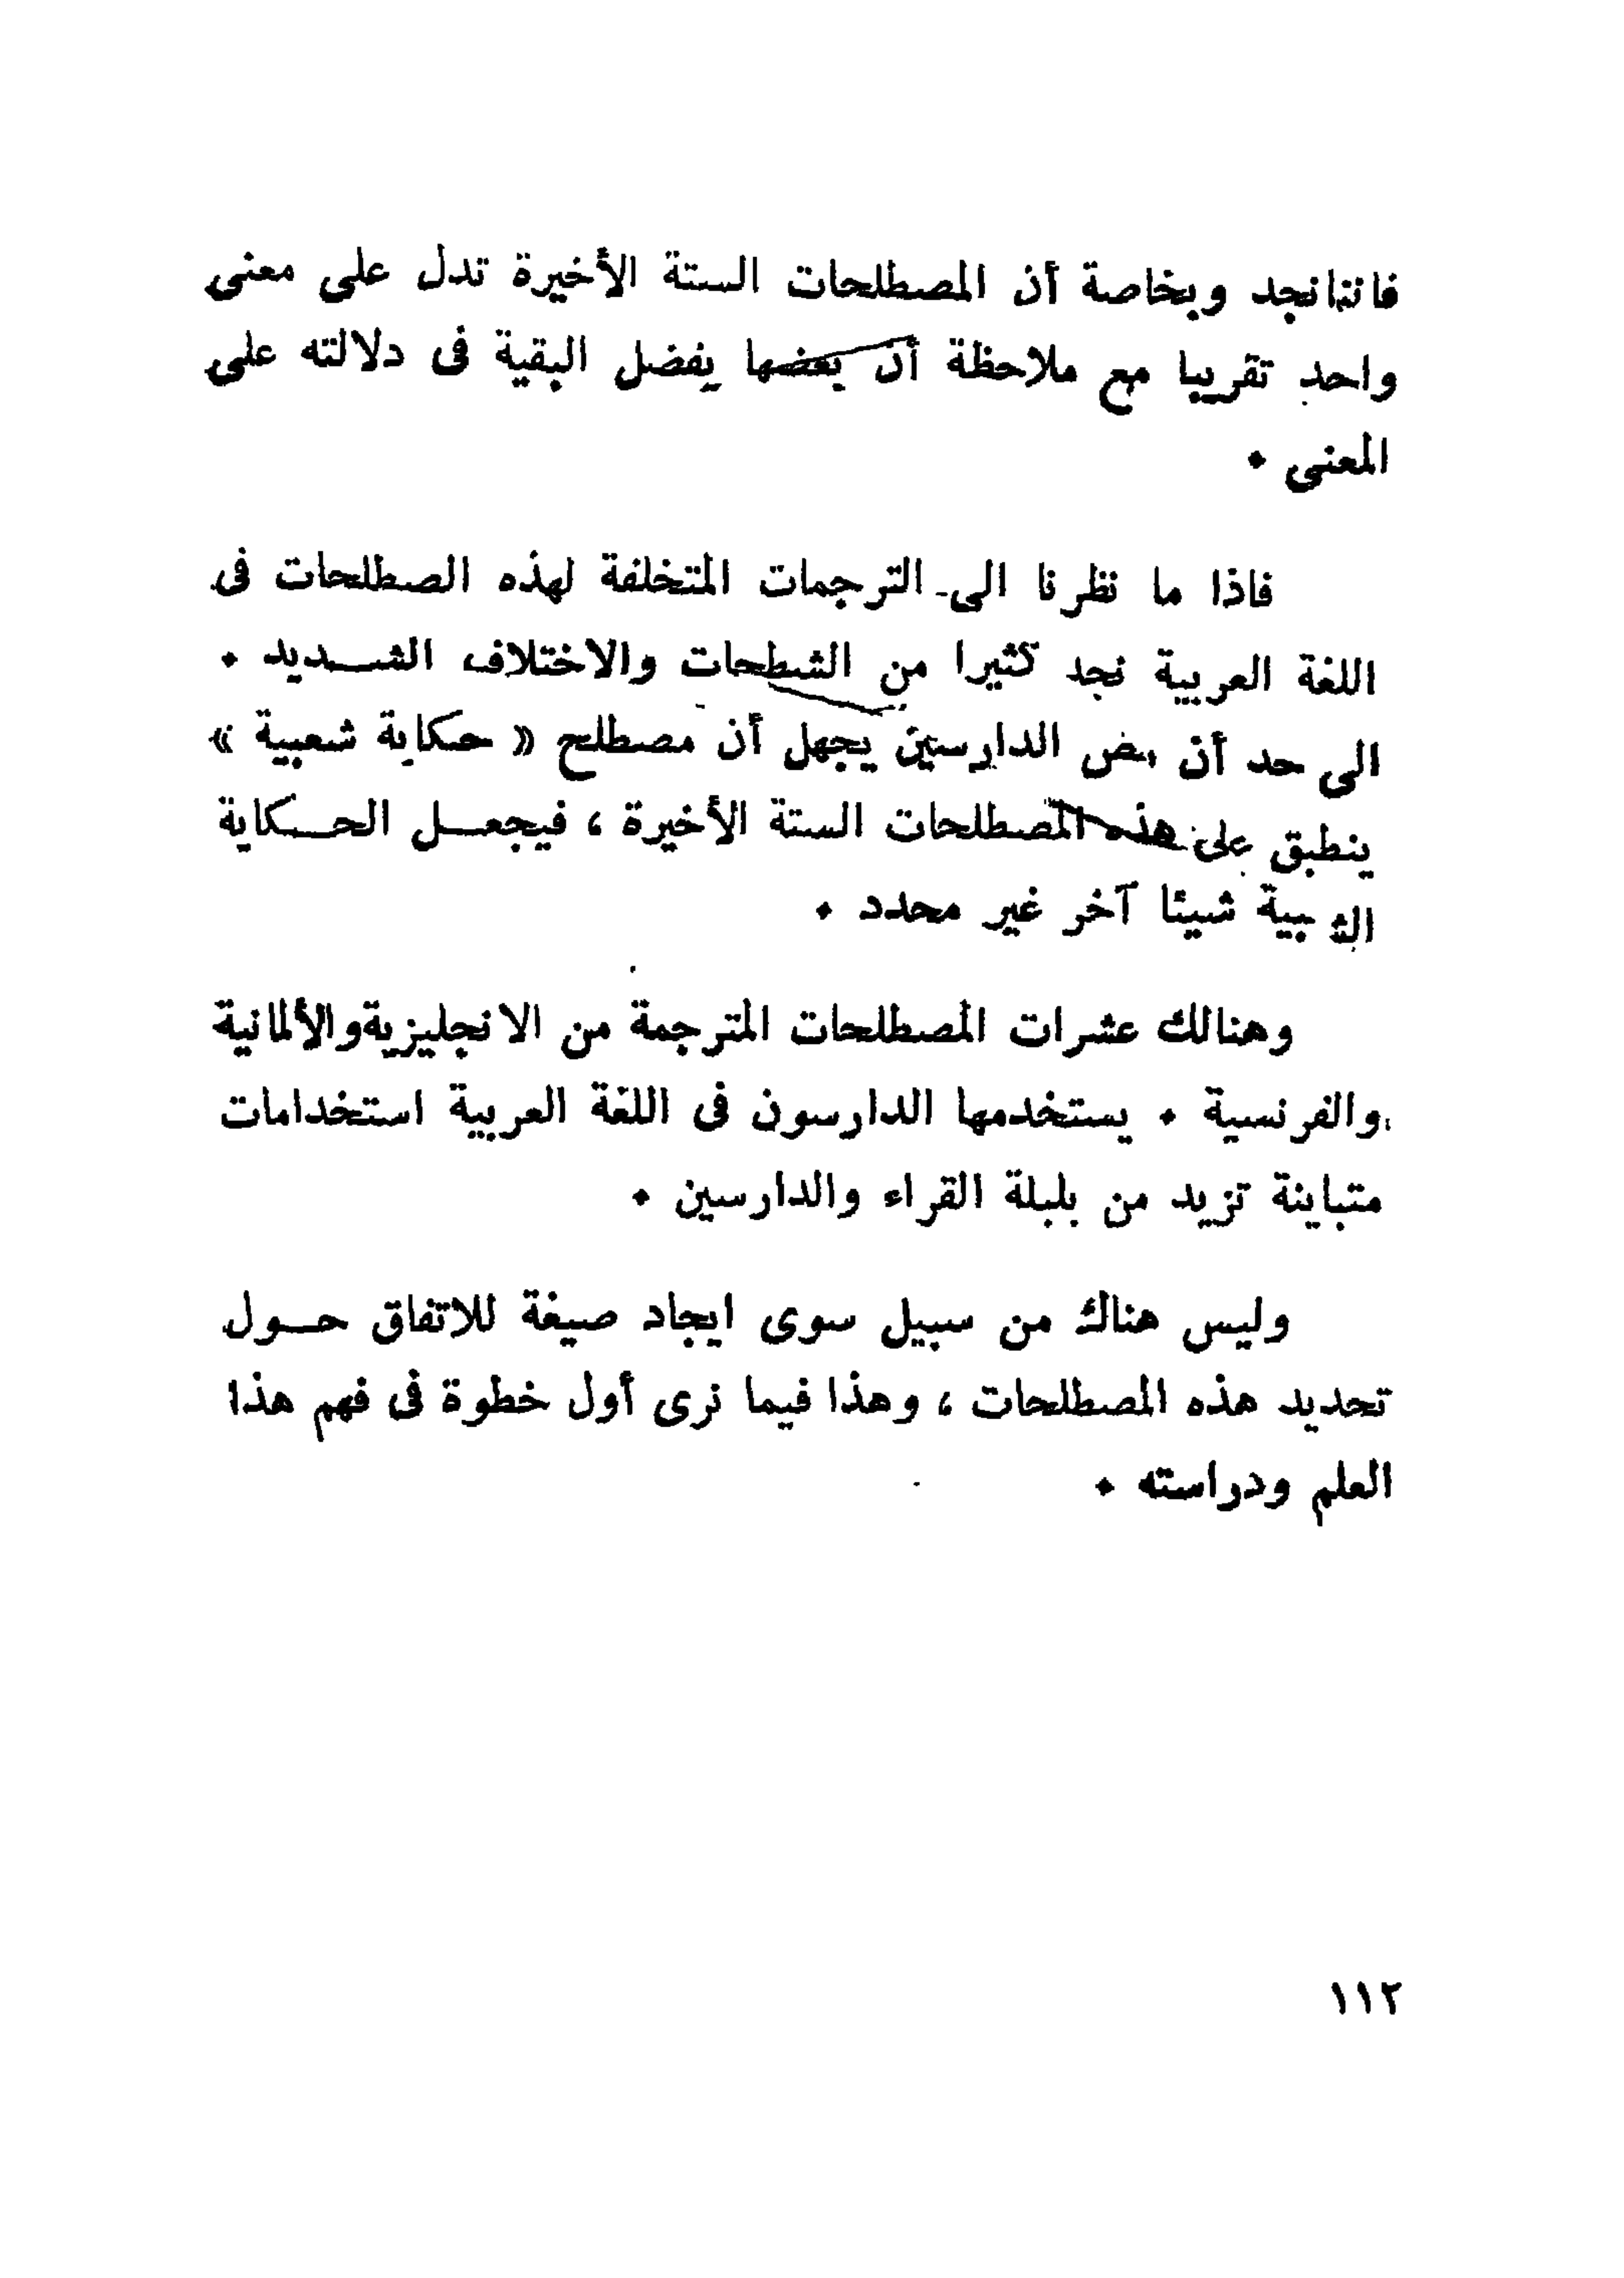 فاننا نجد وبخاصة أن المصطلحات الستة الأخيرة تدل على معنى
واحد تقريبا مع ملاحظة أن بعضها يفضل البقية فى دلالته على
المعنى .
فاذا ما نظرنا الى الترجمات المتخلفة لهذه الصطلحات فى
اللغة العربية نجد كثيرا من الشطحات والاختلاف الشديد .
الى حد أن بعض الدارسين يجهل أن مصطلح « حكاية شعبية »
ينطبق على هذه المصطلحات الستة الأخيرة ، فيجعل الحكاية
الشعبية شيئا آخر غير محدد .
وهنالك عشرات المصطلحات المترجمة من الانجليزية والألمانية
والفرنسية . يستخدمها الدارسون فى اللغة العربية استخدامات
متباينة تزيد من بلبلة القراء والدارسين .
وليس هناك من سبيل سوى ايجاد صيغة للاتفاق حول
تحديد هذه المصطلحات ، وهذا فيما نرى أول خطوة فى فهم هذا
العلم ودراسته .
١١٢